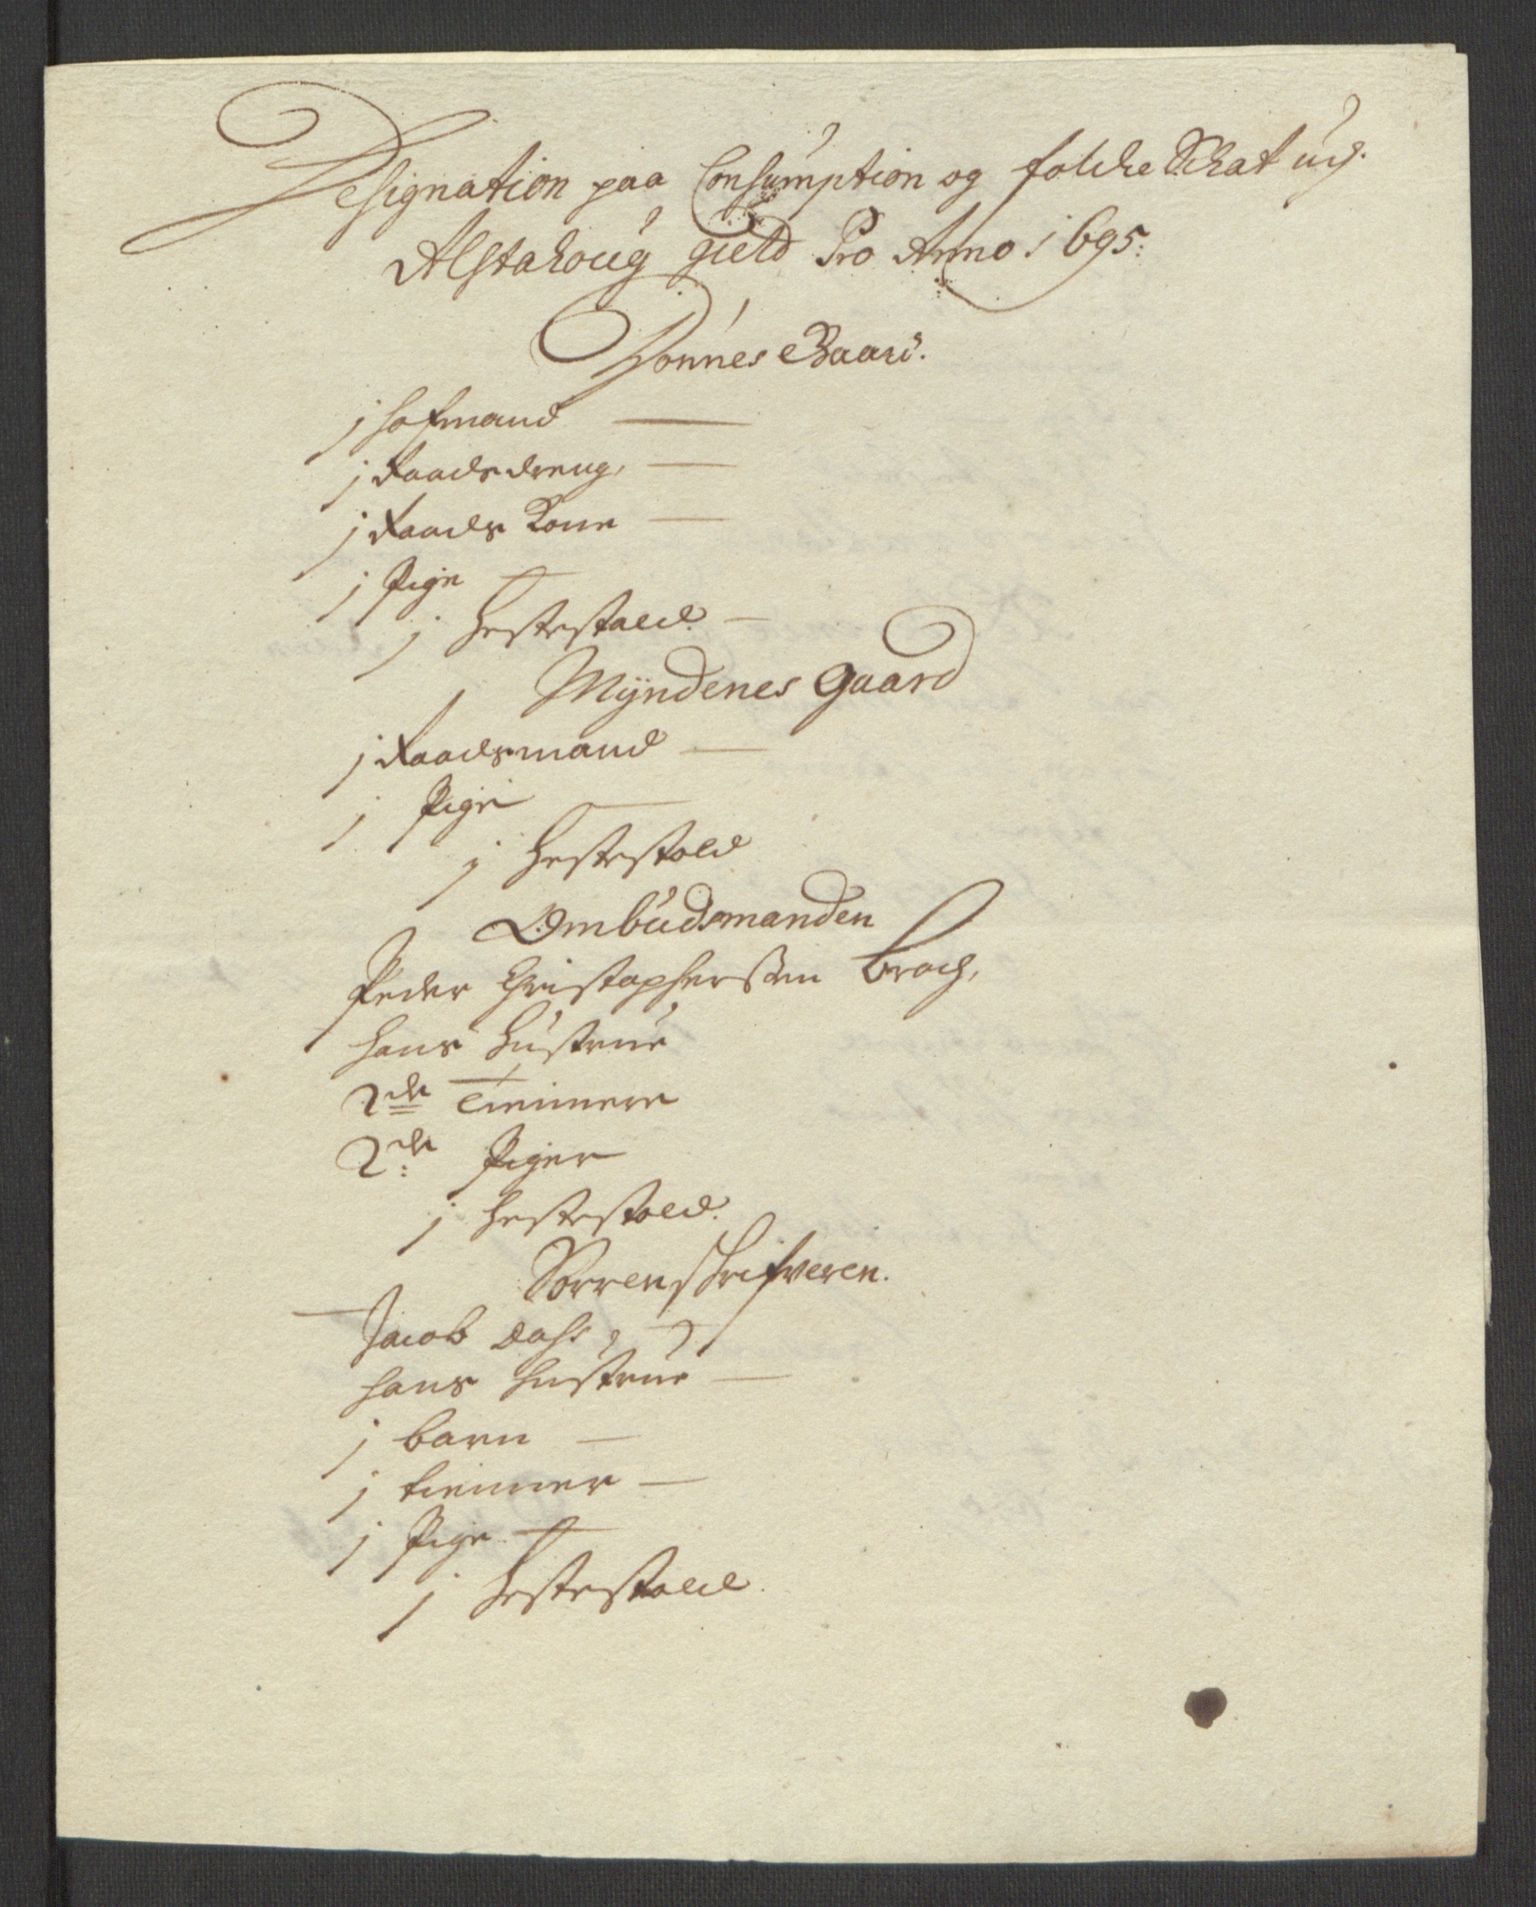 Designation paa Consumption og folche Schat udj.
Alstahoug gield Pro Anno 1695:
Dønnes Gaard.
j hofmand
j Raads dreng,
j Raads Kone
j Pige
j Hestestald.
Mÿndenes Gaard
j Raadsmand
j Pige
j Hestestald
Ombudsmanden
Peder Christophersen Broch,
hans Hustrue
2de Tienner
2de Piger
j Hestestald.
Sorrenschrifveren.
Jacob Dass,
hans hustrue
j barn
j tienner
j Pige
j Hestestald.